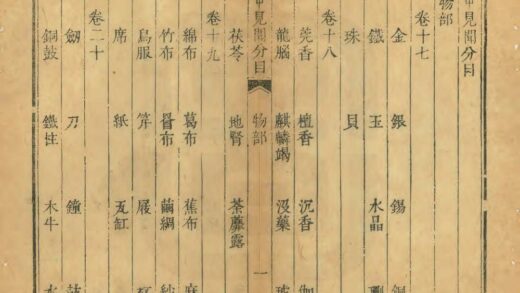 中見聞分目
物部
卷十七
金 銀 錫 銅
鐵 玉 水晶
珠 貝
卷十八
莞香 檀香 沉香 伽
龍腦 麒麟竭 沒藥
中見聞分目 物部 一
茯苓 地腎 荼蘼露
卷十九
綿布 葛布 蕉布 麻
竹布 罾布 繭綢 紗
鳥服 笄 屐
席 紙 瓦缸
卷二十
劒 刀 鐘 鼓
銅鼓 鐵柱 木牛 水